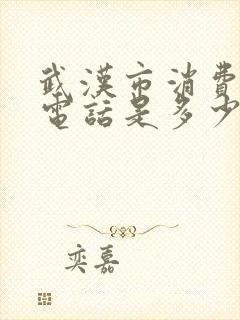 武漢市消費
電話是多少
奕嘉